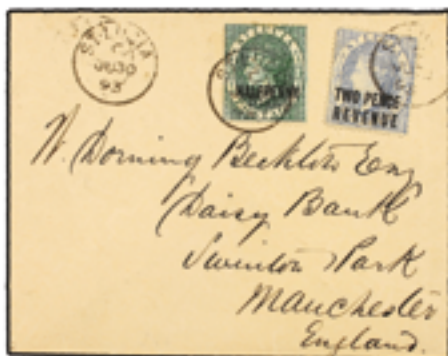 ST. LUCIA
JU 30
93
HALFPENNY
TWO PENCE
REVENUE
W. Dorning Beckton Esq
Daisy Bank
Swinton Park
Manchester
England.